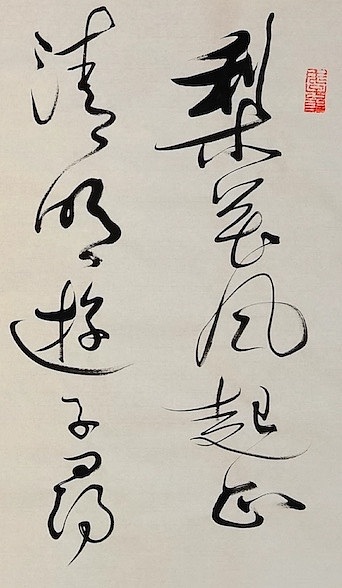 梨花风起正
清明游子寻